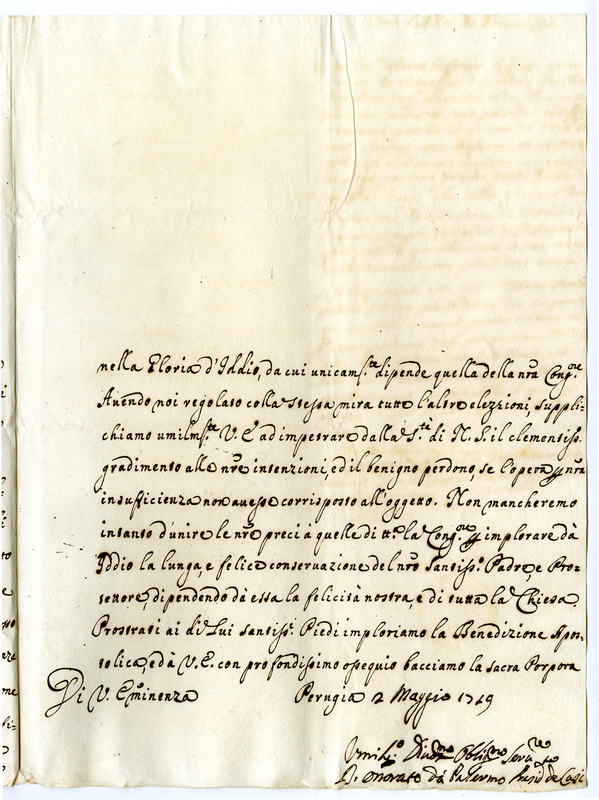 nella Gloria d'Iddio, da cui unicam.te dipende quella della nrã Cong.ne
Auendo noi regolato colla stessa mira tutte l'altre elezzioni, suppli-
chiamo umilm.te V. E. ad impetrare dalla S.tà di N. S. il clementiss.
gradimento alle nrẽ intenzioni, ed il benigno perdono, se l'opera p nrã
insufficienza non auesse corrisposto all'oggetto. Non mancheremo
intanto d'unire le nrẽ preci à quelle di tt.a la Cong.ne p implorare dà
Iddio la lunga, e felice conseruazione del nrõ Santiss.o Padre, e Pro-
tettore, dipendendo dà essa la felicità nostra, e di tutta la Chiesa.
Prostrati ai di Lui santiss.i Piedi imploriamo la Benedizione Apos-
tolica, ed à V. E. con profondissimo ossequio bacciamo la sacra Porpora
Di V. Eminenza Perugia 2 Maggio 1749
Umil.o Diuot.mo Obli.mo Seru.re
D. Onorato dà Palermo